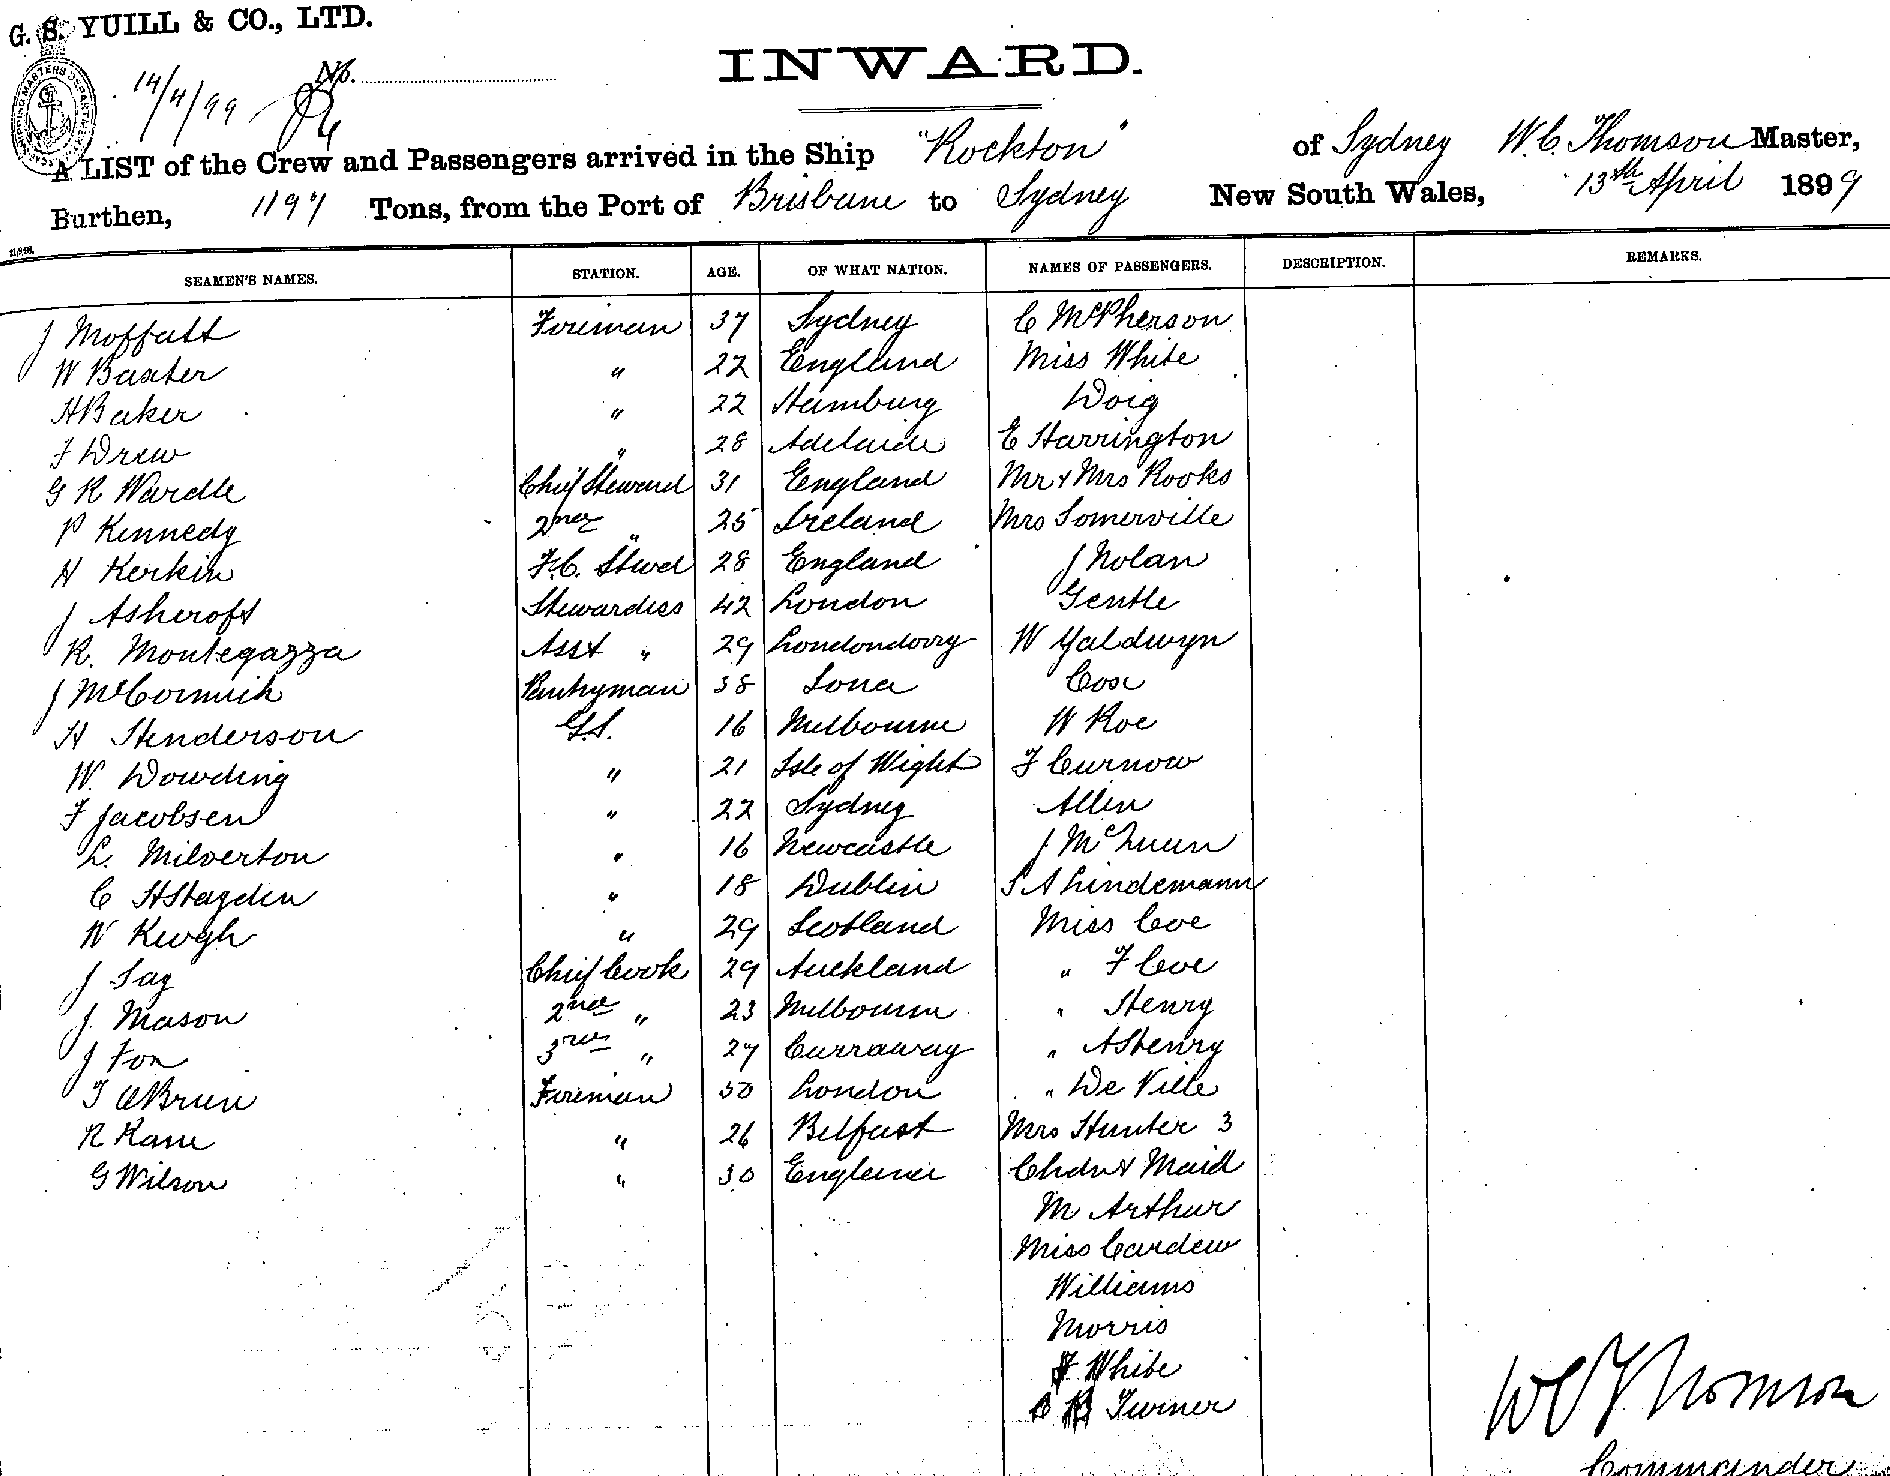 G. S. YUILL & CO., LTD.
14/4/99
No.
INWARD.
A LIST of the Crew and Passengers arrived in the Ship "Rockton" of Sydney W. C. Thomson Master,
Burthen, 1197 Tons, from the Port of Brisbane to Sydney New South Wales, 13th April 1899
SEAMEN'S NAMES. STATION. AGE. OF WHAT NATION. NAMES OF PASSENGERS. DESCRIPTION. REMARKS.
J Moffatt Fireman 37 Sydney C McPherson
W Baxter " 22 England Miss White
H Baker " 22 Hamburg Doig
F Drew " 28 Adelaide E Harrington
G R Wardle Chief Steward 31 England Mr & Mrs Rooks
P Kennedy 2nd " 25 Ireland Mrs Somerville
H Kerkin F.C. Stwd 28 England J Nolan
J Ashcroft Stewardess 42 London Gentle
R. Montegazza Asst " 29 Londondorry W Yaldwyn
J McCormick Pantryman 38 Iona Cox
H Henderson G.S. 16 Melbourne W Roe
W. Dowding " 21 Isle of Wight F Curnow
F Jacobsen " 22 Sydney Allen
L. Milverton " 16 Newcastle J McQueen
C H Hayden " 18 Dublin S A Lindemann
W Keogh " 29 Scotland Miss Coe
J Say Chief Cook 29 Auckland " F Coe
J. Mason 2nd " 23 Melbourne " Henry
J Fox 3rd " 27 Curraway " A Henry
T OBrien Fireman 30 London " De Ville
R Kane " 26 Belfast Mrs Hunter 3
G Wilson " 30 England Chdn & Maid
M Arthur
Miss Cardew
Williams
Morris
F White
Turner
W C Thomson
Commander